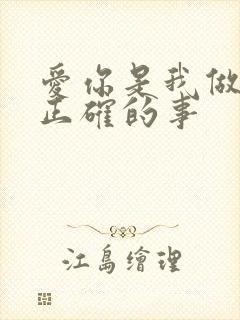 愛你是我做
正確的事
江島繪理